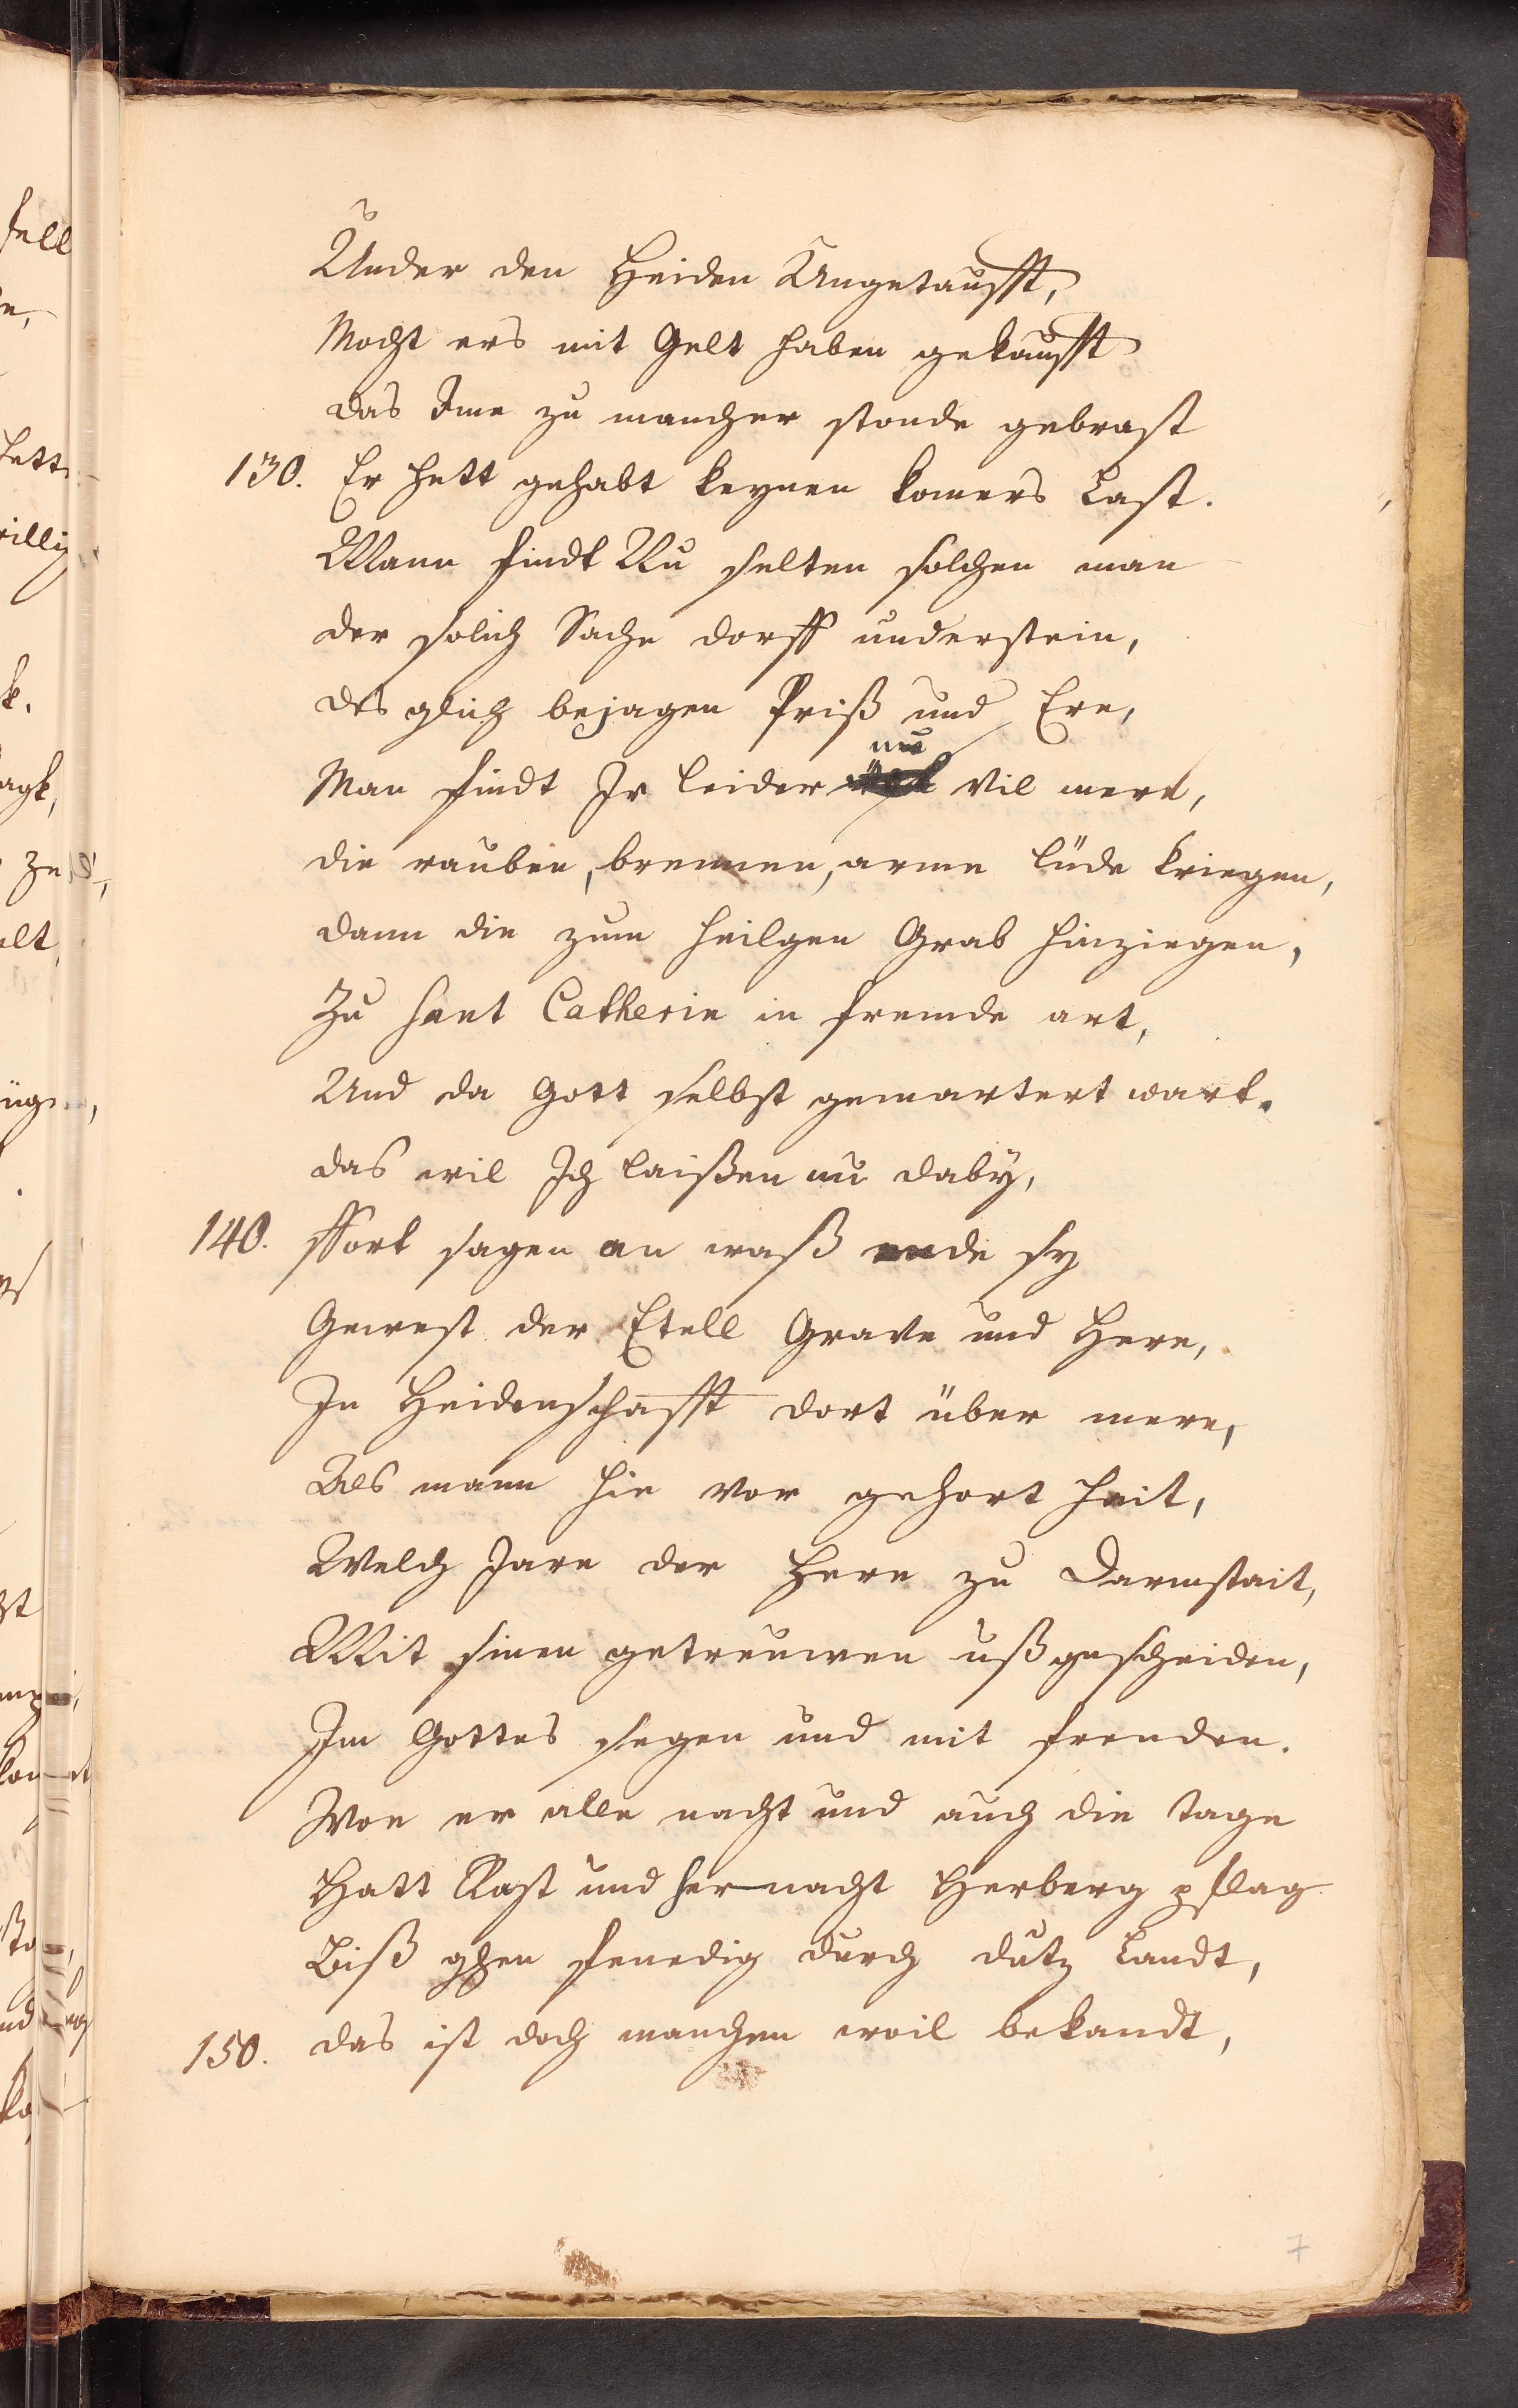 Under den Heiden Ungetaufft,
Mocht ers mit Gelt haben gekaufft
das Ime zu mancher stonde gebrast
130. Er hett gehabt keynen komers Last.
Mann findt Nu selten solchen man
der solich Sache dorff understein,
des glich bejagen Priß und Ere,
nu
Man findt Ir leider vil mere,
die rauben, brennen, arme lüde kriegen,
dann die zum heilgen Grab hinziegen,
Zu Sant Catherin in fremde art,
Und da Gott selbst gemartert wart.
das wil Ich laißen nu daby,
140. ffort sagen an waß ende sy
Gewest der Etell Grave und Here,
In Heidenschafft dort über mere,
Als mann hie vor gehort hait,
Welch Jare der Here zu Darmstait,
Mit sinen getreuwen ußgescheiden,
Im Gottes segen und mit freuden.
Woe er alle nacht und auch die tage
Hatt Rast und her nacht Herberg pflag
Biß ghen Fenedig durch dutz Landt,
150. das ist doch manchen woil bekandt,
7